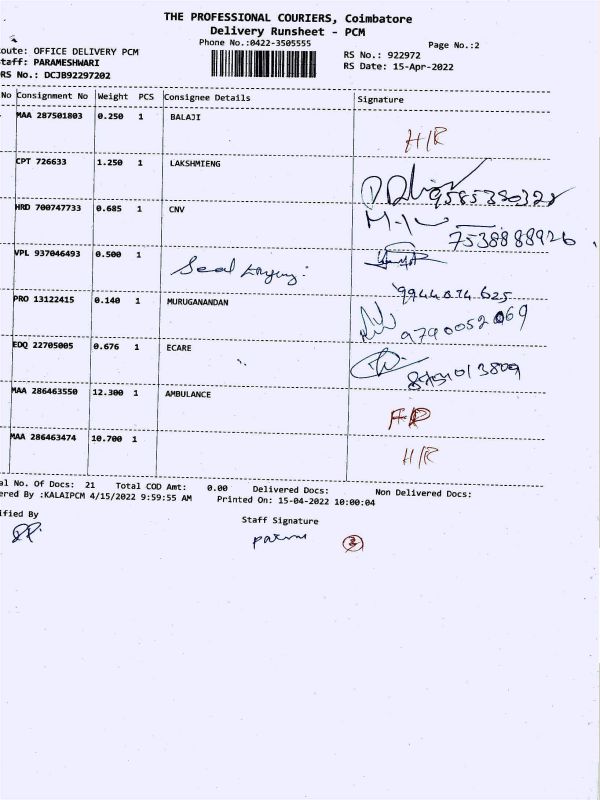 THE PROFESSIONAL COURIERS, Coimbatore
Delivery Runsheet - PCM
Phone No.:0422-3505555
Page No.:2
oute: OFFICE DELIVERY PCM
taff: PARAMESHWARI
RS No.: DCJB92297202
RS No.: 922972
RS Date: 15-Apr-2022
No Consignment No Weight PCS Consignee Details Signature
MAA 287501803 0.250 1 BALAJI
H/R
CPT 726633 1.250 1 LAKSHMIENG
9585390328
HRD 700747733 0.685 1 CNV
7538888926
VPL 937046493 0.500 1
Seal
9944874625
PRO 13122415 0.140 1 MURUGANANDAN
9790052069
EDQ 22705005 0.676 1 ECARE
MAA 286463550 12.300 1 AMBULANCE
MAA 286463474 10.700 1
H/R
al No. Of Docs: 21 Total COD Amt: 0.00 Delivered Docs: Non Delivered Docs:
ered By :KALAIPCM 4/15/2022 9:59:55 AM Printed On: 15-04-2022 10:00:04
ified By
Staff Signature